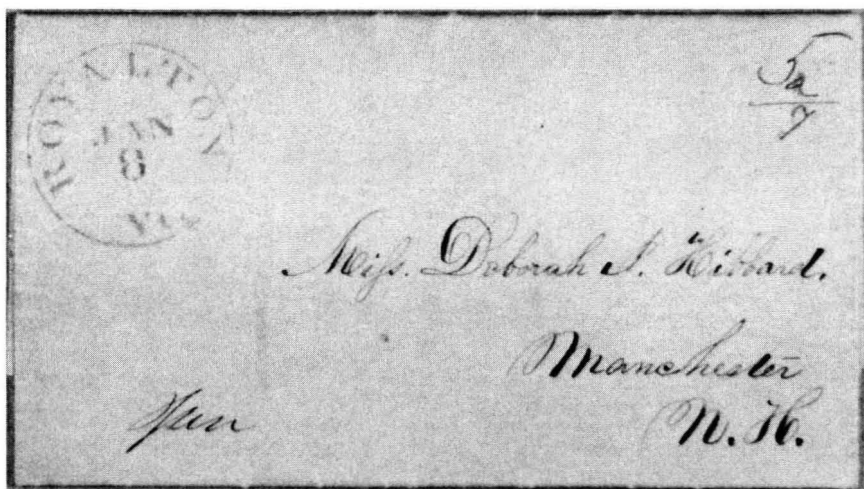 ROYALTON
JAN
8
5
7
Miſs. Deborah I. Hibbard.
Manchester
N. H.